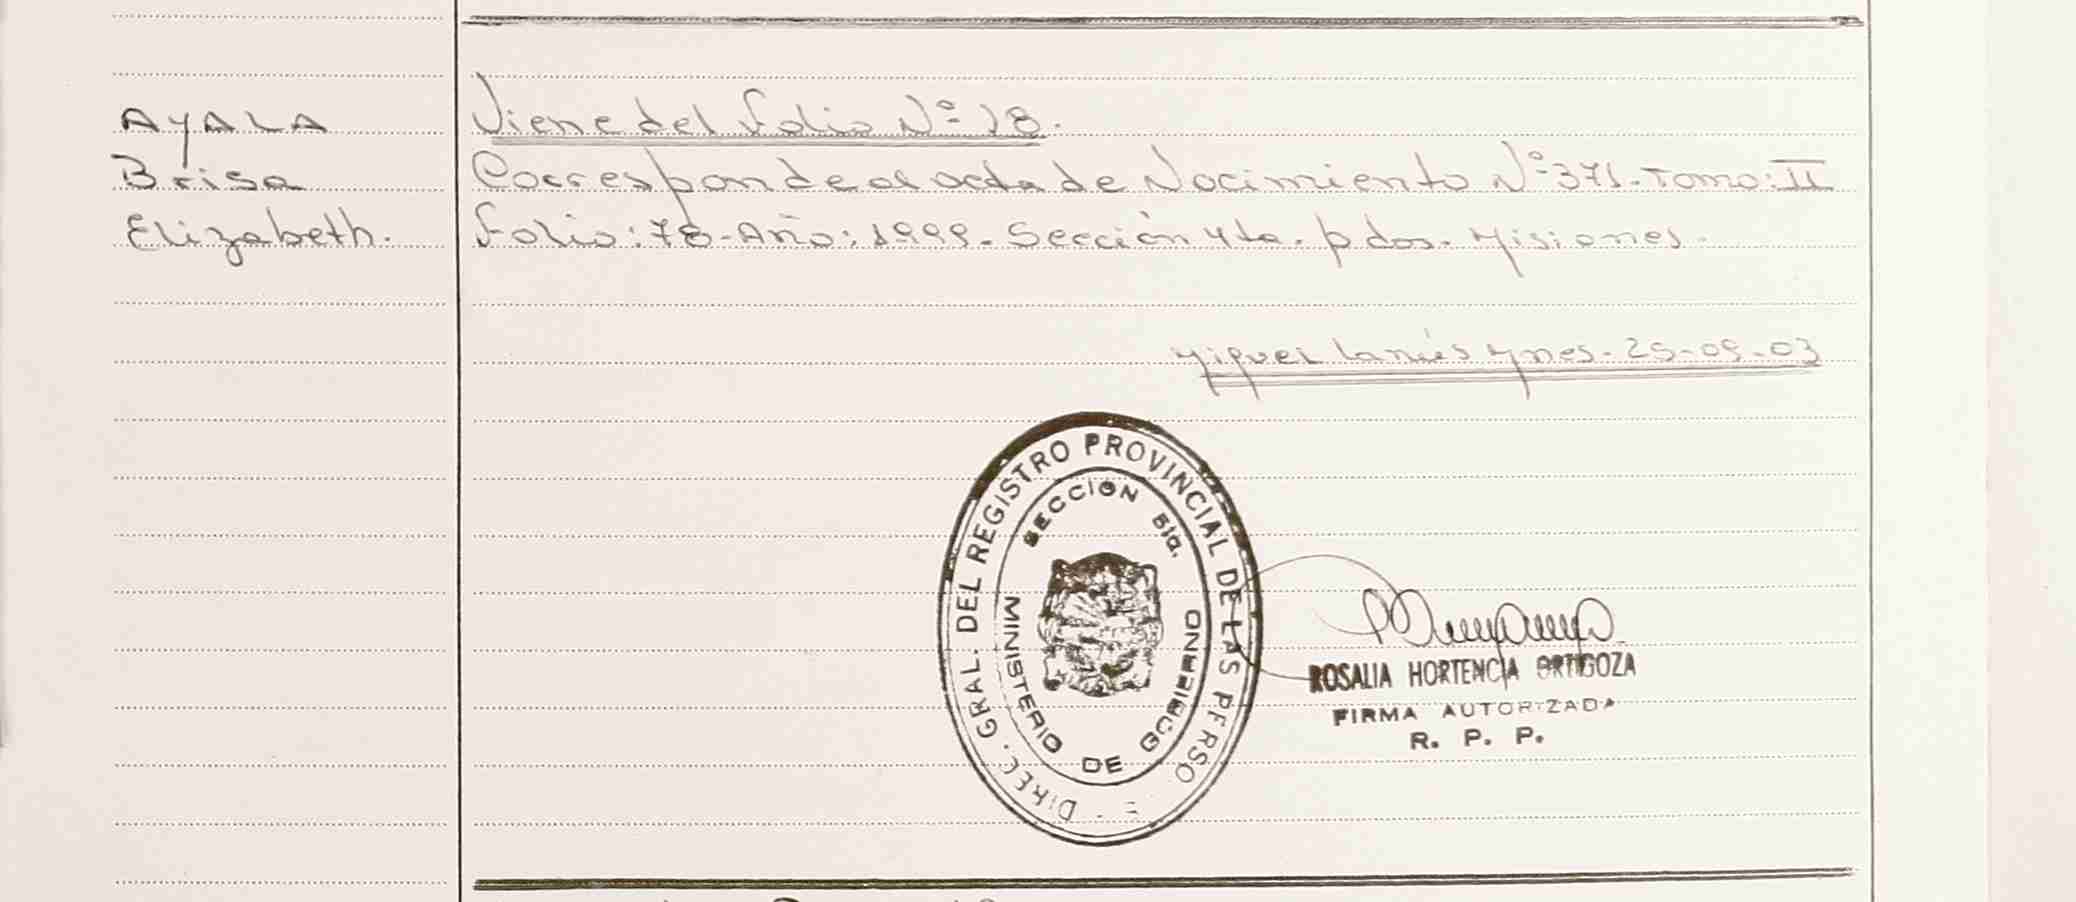 AYALA
Brisa
Elizabeth.
Viene del folio Nº 28.
Corresponde al acta de Nacimiento Nº 371. Tomo: II
folio: 78. Año: 1999. Sección 4ta. pdas. Misiones.
Miguel Lanús Mnes. 25-09-03
DIREC. GRAL. DEL REGISTRO PROVINCIAL DE LAS PERSO
SECCION 5ta.
MINISTERIO DE GOBIERNO
ROSALIA HORTENCIA ORTIGOZA
FIRMA AUTORIZADA
R. P. P.